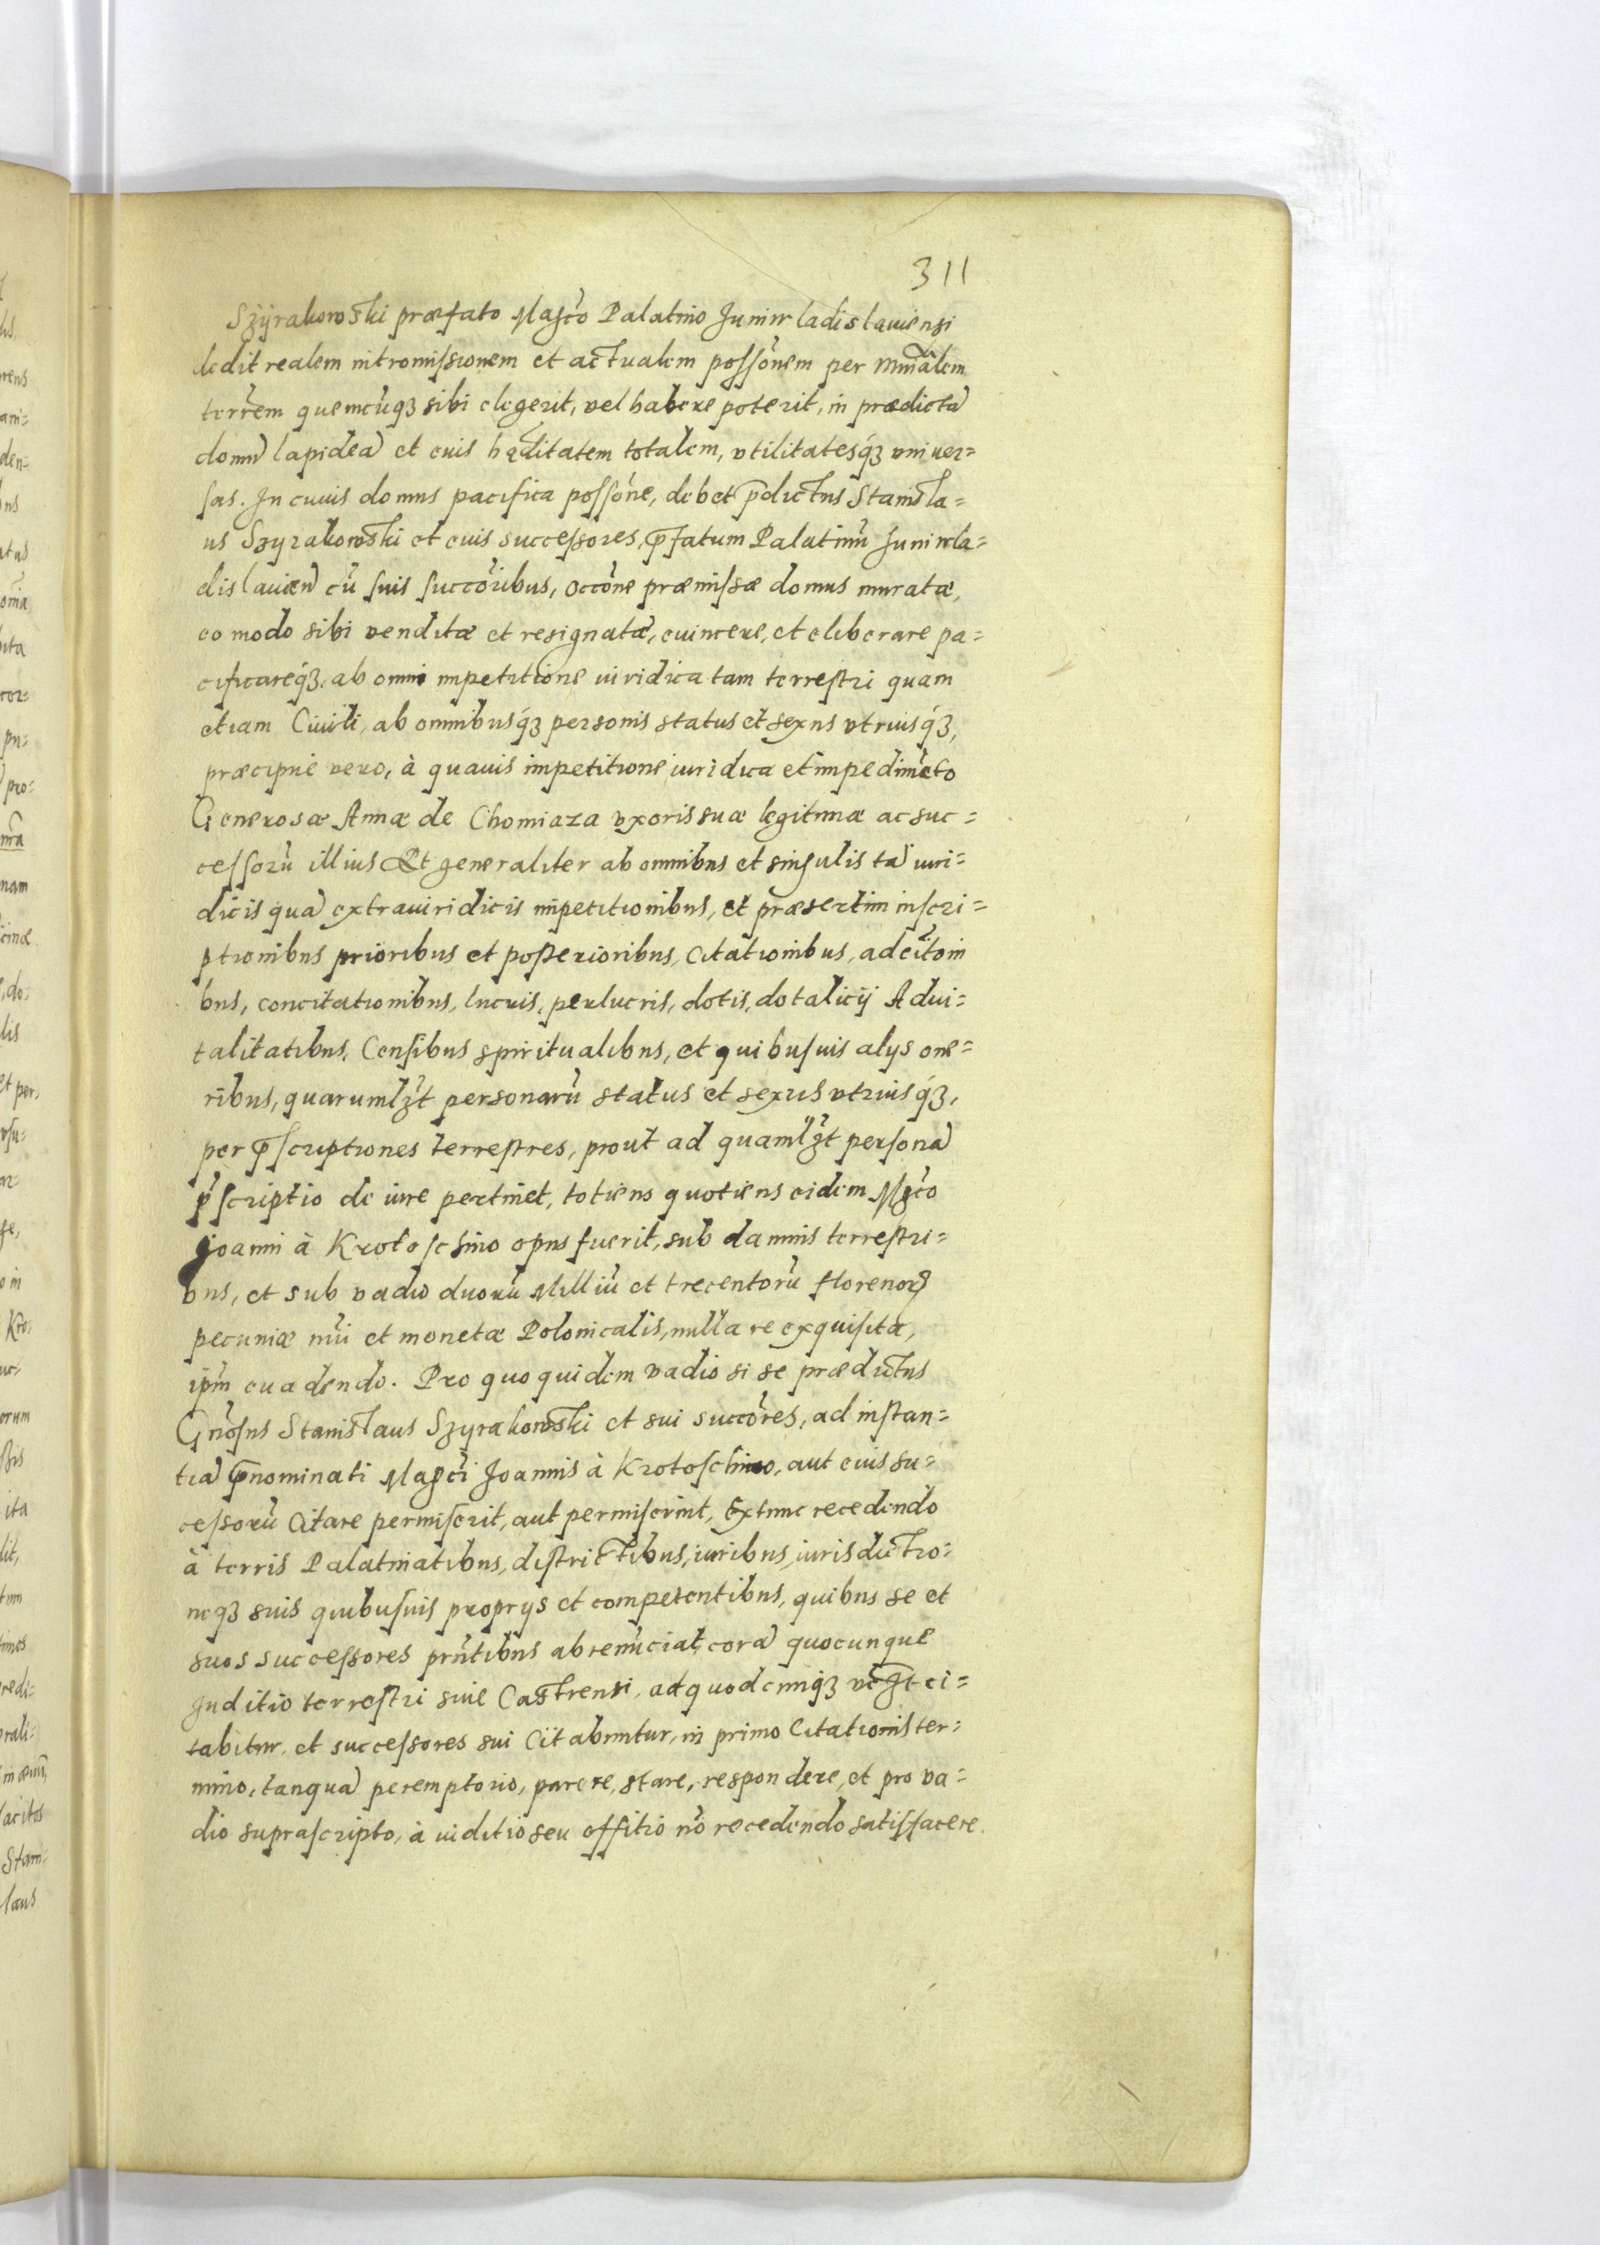 311
Szyrakowski præfato Magco Palatino Juniwladislauiensi
dedit realem intromissionem et actualem possonem per mnralem
terrem quemcuqz sibi elegerit, vel habere poterit, in prædicta
domu lapidea et euis hæditatem totalem, vtilitatesqz vniuer=
sas. In cuuis domus pacifica possone, debet pdictus Stanisla=
us Szyrakowski et euis successores, pfatum Palatinu Juniwla=
dislauien cu suis succoribus, occone præmissæ domus muratæ,
eo modo sibi venditæ et resignatæ, euincere, et eliberare pa=
cificareqz, ab omni impetitione iuridica tam terrestri quam
etiam Ciuili, ab omnibusqz personis status et sexus vtriusqz,
præcipuè vero, à quauis impetitione iuridica et impedimeto
Generosæ Annæ de Chomiaza vxoris suæ legitimæ ac suc=
cessoru illius Et generaliter ab omnibus et singulis ta iuri=
dicis qua extraiuridicis impetitionibus, et præsertim inscri=
ptionibus prioribus et posterioribus, citationibus, adcitoin
bus, concitationibus, lucris, perlucris, dotis, dotalicij Adui=
talitatibus, Censibus spiritualibus, et quibusuis alys one=
ribus, quarumlzt personaru status et sexus vtriusqz,
per pscriptiones terrestres, prout ad quamlzt persona
pscriptio de iure pertinet, totiens quotiens eidem Mgco
Joanni à Krotoschino opus fuerit, sub damnis terrestri=
bus, et sub vadio duoru Milliu et trecentoru florenor
pecuniæ nui et monetæ Polonicalis, nulla re exquisita,
ipm euadendo. Pro quo quidem vadio si se prædictus
Gnosus Stanislaus Szyrakowski et sui succores, ad instan=
tia pnominati Magci Joannis à Krotoschino, aut euis su=
cessoru citare permiserit, aut permiserint, Extunc recedendo
à terris Palatinatibus, districtibus, iuribus, iurisdictio=
neqz suis quibusuis proprys et competentibus, quibus se et
suos successores prntibus abrenuciat, cora quocunque
Juditio terrestri siue Castrensi, ad quodcunqz ci=
tabitur, et successores sui Citabuntur, in primo Citationis ter=
mino, tanqua peremptorio, parere, stare, respondere, et pro va=
dio suprascripto, à iuditio seu offitio no recedendo satisfacere.